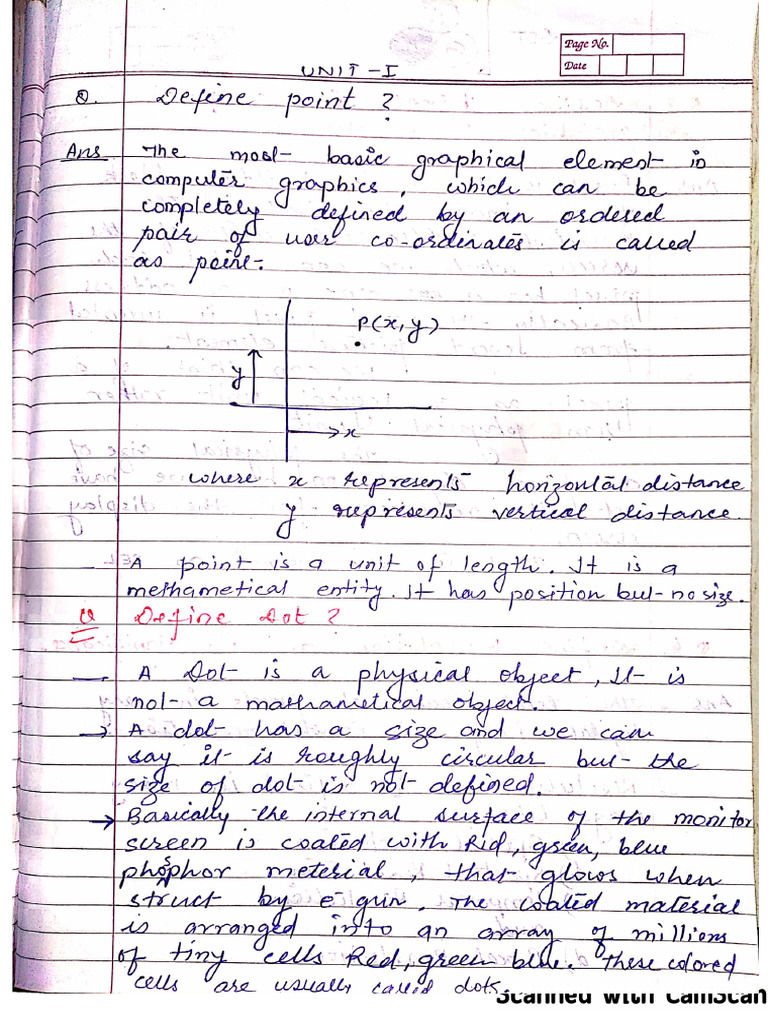 Page No.
Date
UNIT-I
Q. Define point?
Ans The most basic graphical element in
computer graphics, which can be
completely defined by an ordered
pair of user co-ordinates is called
as point.
P(x,y)
y
x
where x represents horizontal distance
y represents vertical distance.
A point is a unit of length. It is a
methametical entity. It has position but no size.
Q Define Dot?
A Dot is a physical object, It is
not a mathametical object.
→ A dot has a size and we can
say it is roughly circular but the
size of dot is not defined.
→ Basically the internal surface of the monitor
screen is coated with Rid, green, blue
phosphor meterial, that glows when
struct by e⁻ gun. The coated material
is arranged into an array of millions
of tiny cells Red, green blue. These colored
cells are usually called dots.
Scanned with CamScan